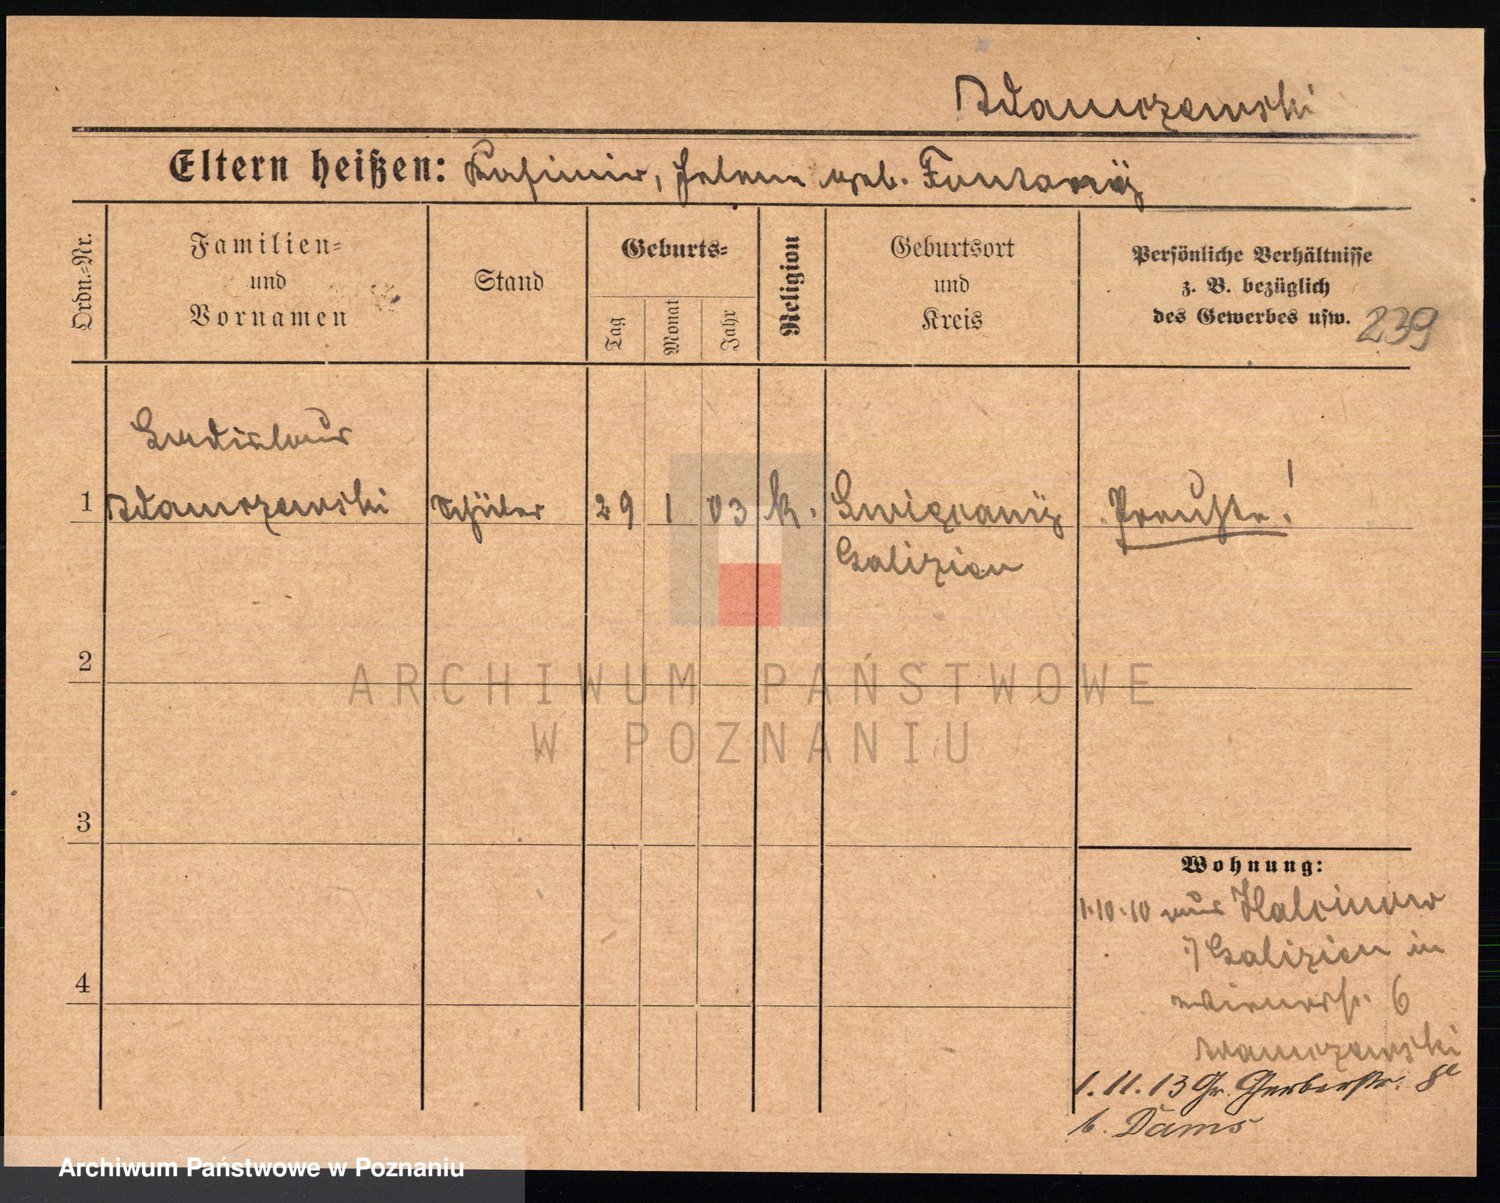 Adamczewski
Eltern heißen: Kasimir, Helene geb. Fontany
Ordn.-Nr.
Familien-
und
Vornamen
Stand
Geburts-
Tag
Monat
Jahr
Religion
Geburtsort
und
Kreis
Persönliche Verhältnisse
z. B. bezüglich
des Gewerbes usw.
239
Ladislaus
1 Adamczewski Schüler 29 1 03 k. Preuße!
Galizien
2
3
4
Wohnung:
1.10.10 aus
Galizien in
6
Adamczewski
1.11.13 Gr. Gerberstr. 8
b. Dams
ARCHIWUM PAŃSTWOWE
W POZNANIU
Archiwum Państwowe w Poznaniu